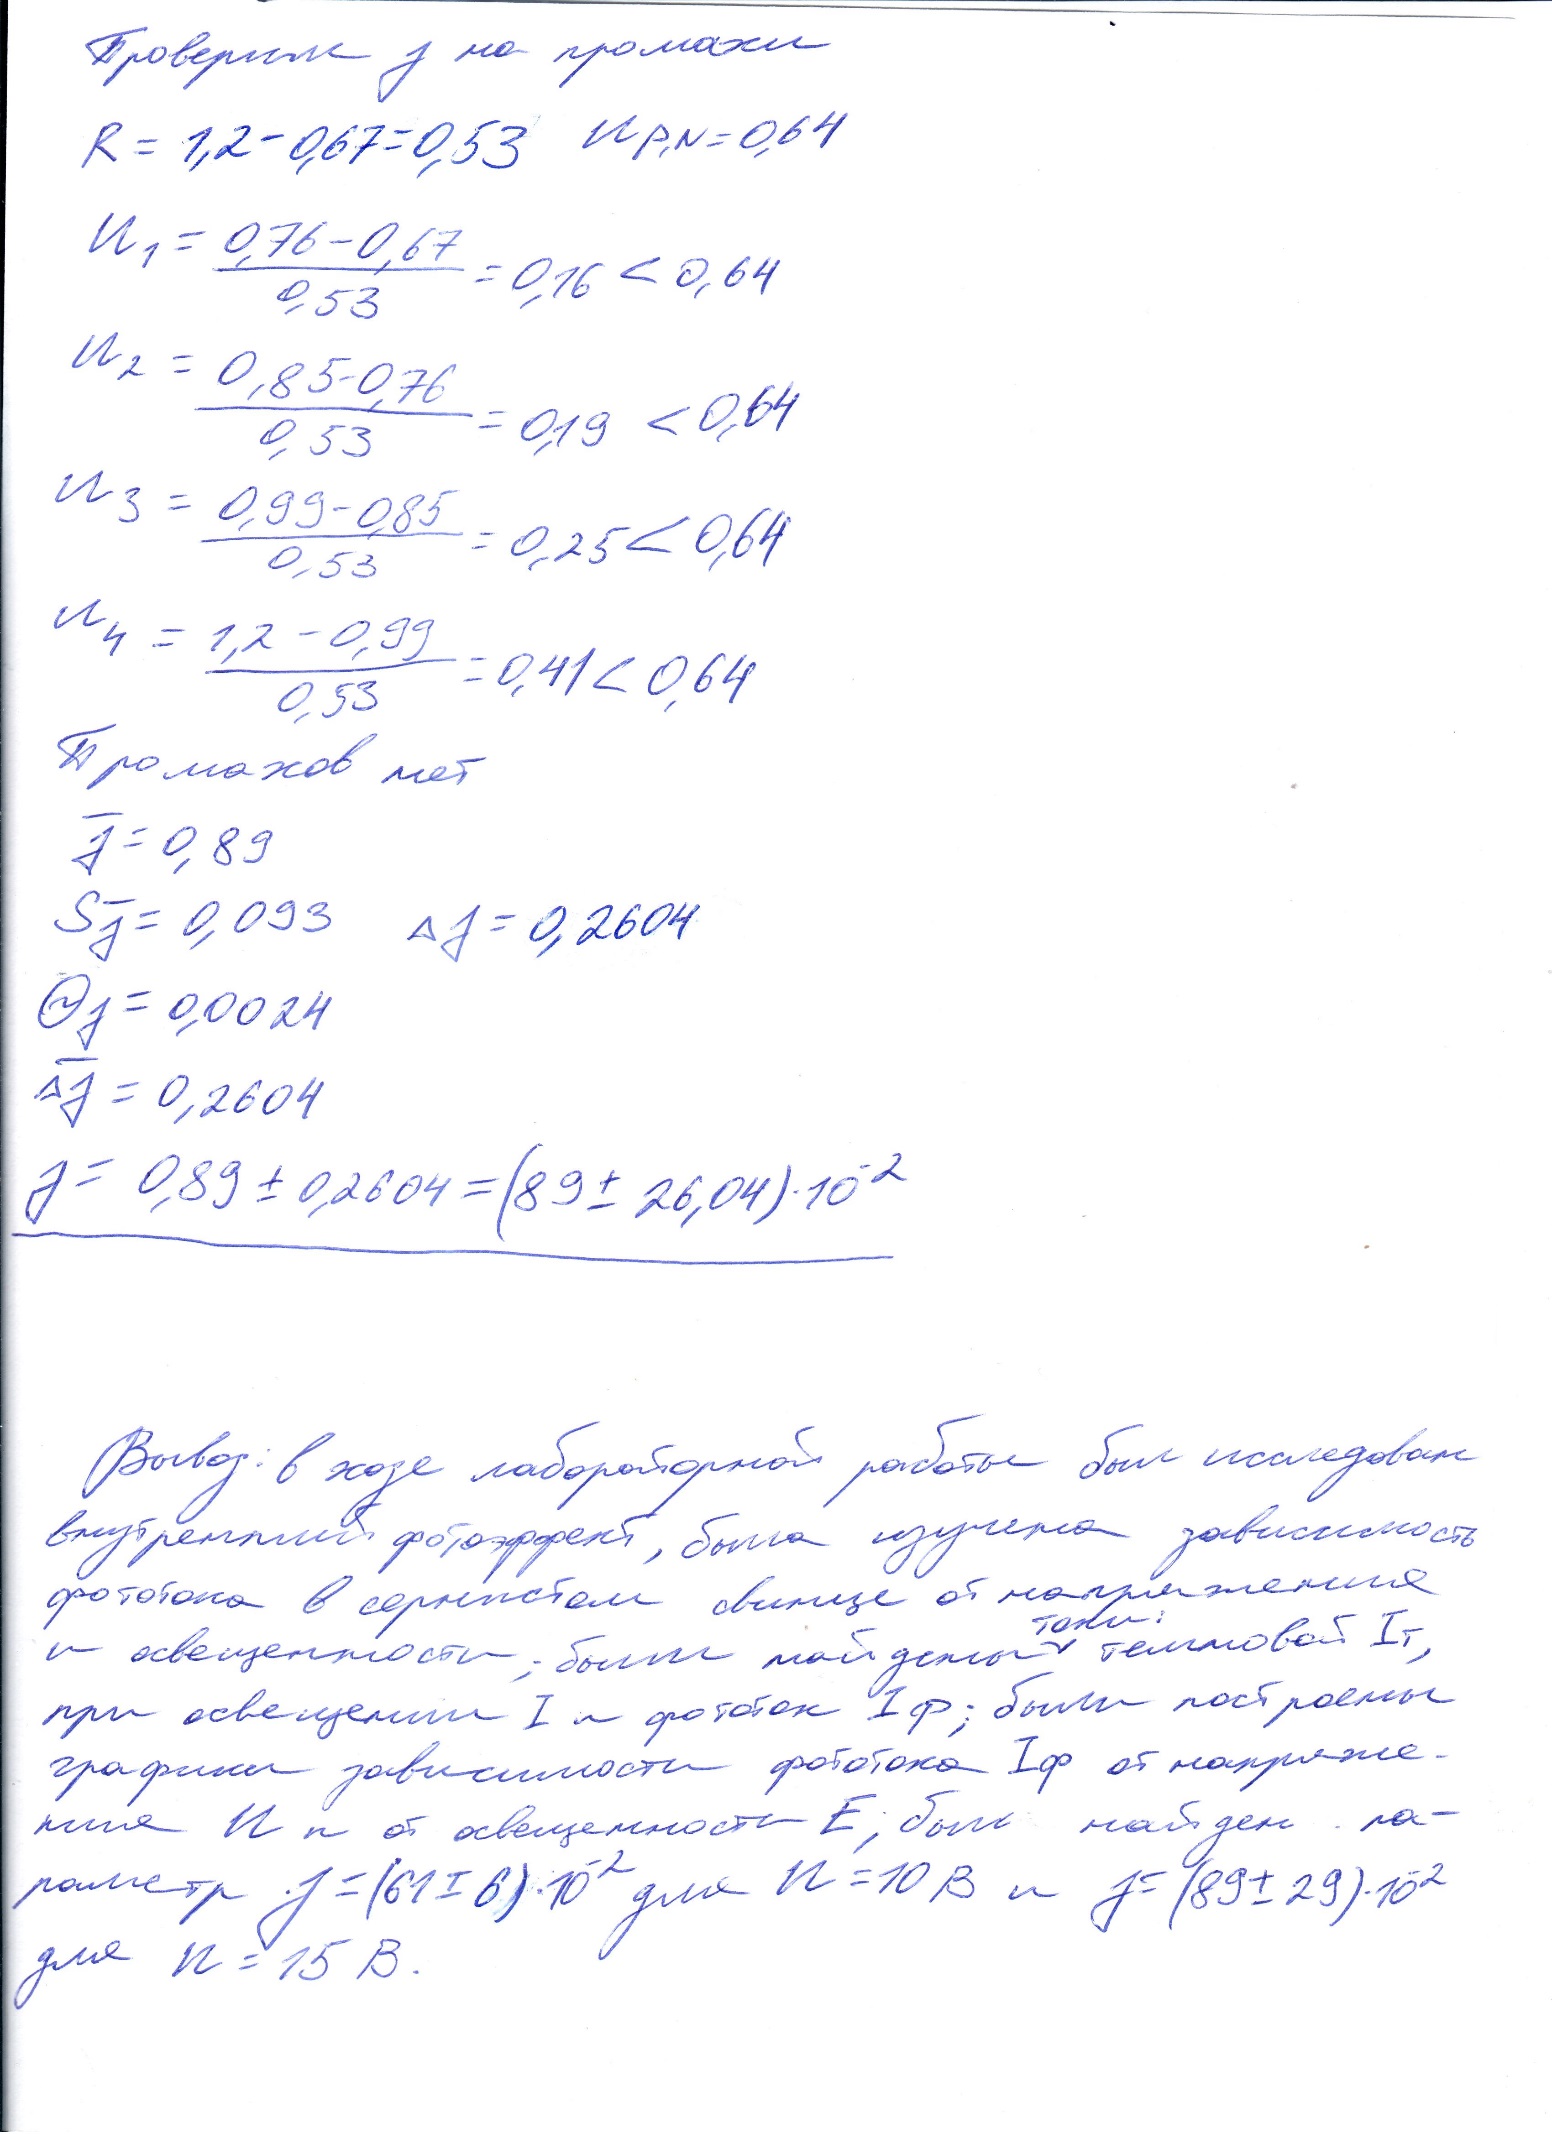 Проверим γ на промахи
R = 1,2 - 0,67 = 0,53 U P,N = 0,64
U₁ = (0,76 - 0,67) / 0,53 = 0,16 < 0,64
U₂ = (0,85 - 0,76) / 0,53 = 0,19 < 0,64
U₃ = (0,99 - 0,85) / 0,53 = 0,25 < 0,64
U₄ = (1,2 - 0,99) / 0,53 = 0,41 < 0,64
Промахов нет
γ̅ = 0,89
Sγ̅ = 0,093 Δγ = 0,2604
Θγ = 0,0024
Δγ̅ = 0,2604
γ = 0,89 ± 0,2604 = (89 ± 26,04)·10⁻²
Вывод: в ходе лабораторной работы был исследован
внутренний фотоэффект, была изучена зависимость
фототока в сернистом свинце от напряжения
и освещенности; были найдены токи: темновой Iт,
при освещении I и фототок Iф; были построены
графики зависимости фототока Iф от напряже-
ния U и от освещенности E; был найден па-
раметр γ = (61 ± 6)·10⁻² для U = 10 В и γ = (89 ± 29)·10⁻²
для U = 15 В.